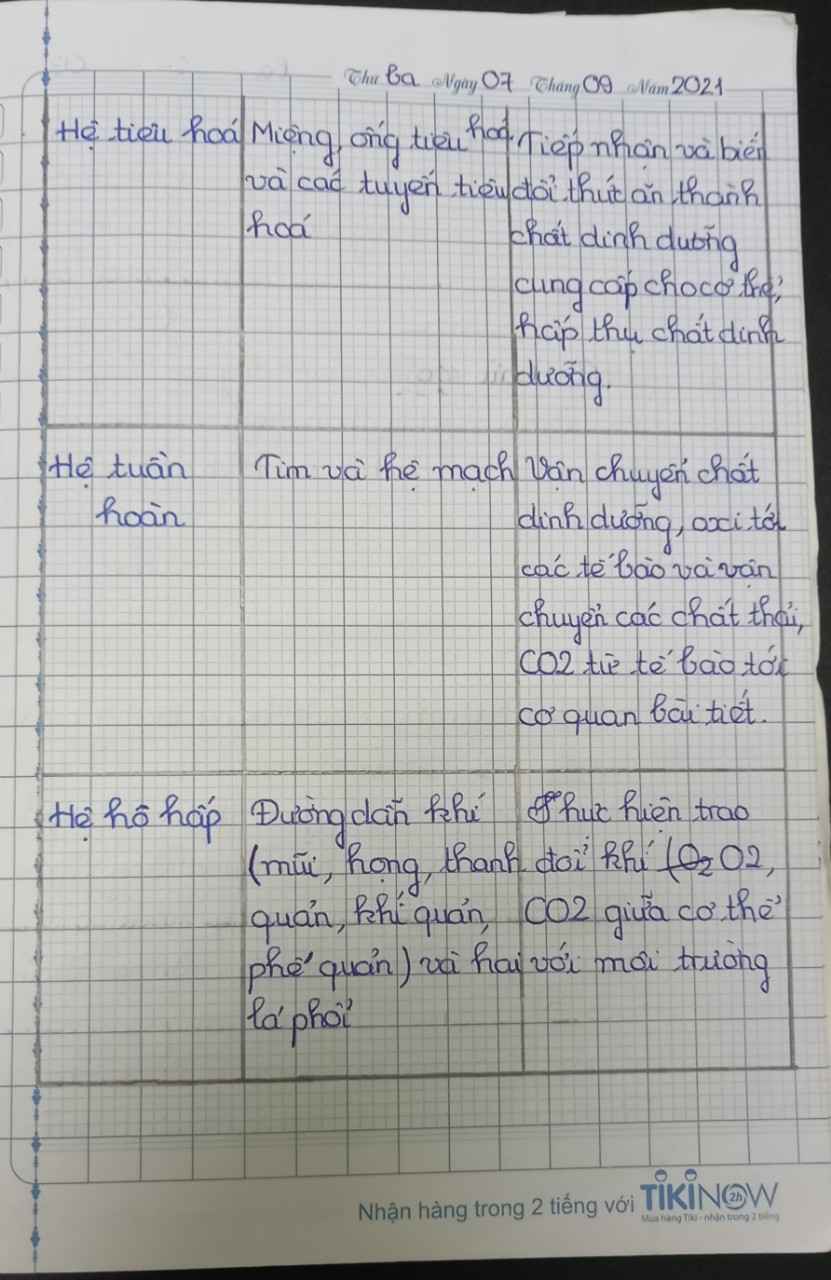 Thứ Ba Ngày 07 Tháng 09 Năm 2021
Hệ tiêu hoá
Miệng, ống tiêu hoá
và các tuyến tiêu
hoá
Tiếp nhận và biến
đổi thức ăn thành
chất dinh dưỡng
cung cấp cho cơ thể,
hấp thụ chất dinh
dưỡng.
Hệ tuần
hoàn
Tim và hệ mạch
Vận chuyển chất
dinh dưỡng, oxi tới
các tế bào và vận
chuyển các chất thải,
CO2 từ tế bào tới
cơ quan bài tiết.
Hệ hô hấp
Đường dẫn khí
(mũi, họng, thanh
quản, khí quản,
phế quản) và hai
lá phổi
Thực hiện trao
đổi khí (O2,
CO2 giữa cơ thể
với môi trường
Nhận hàng trong 2 tiếng với TIKINOW 2h
Mua hàng Tiki - nhận trong 2 tiếng